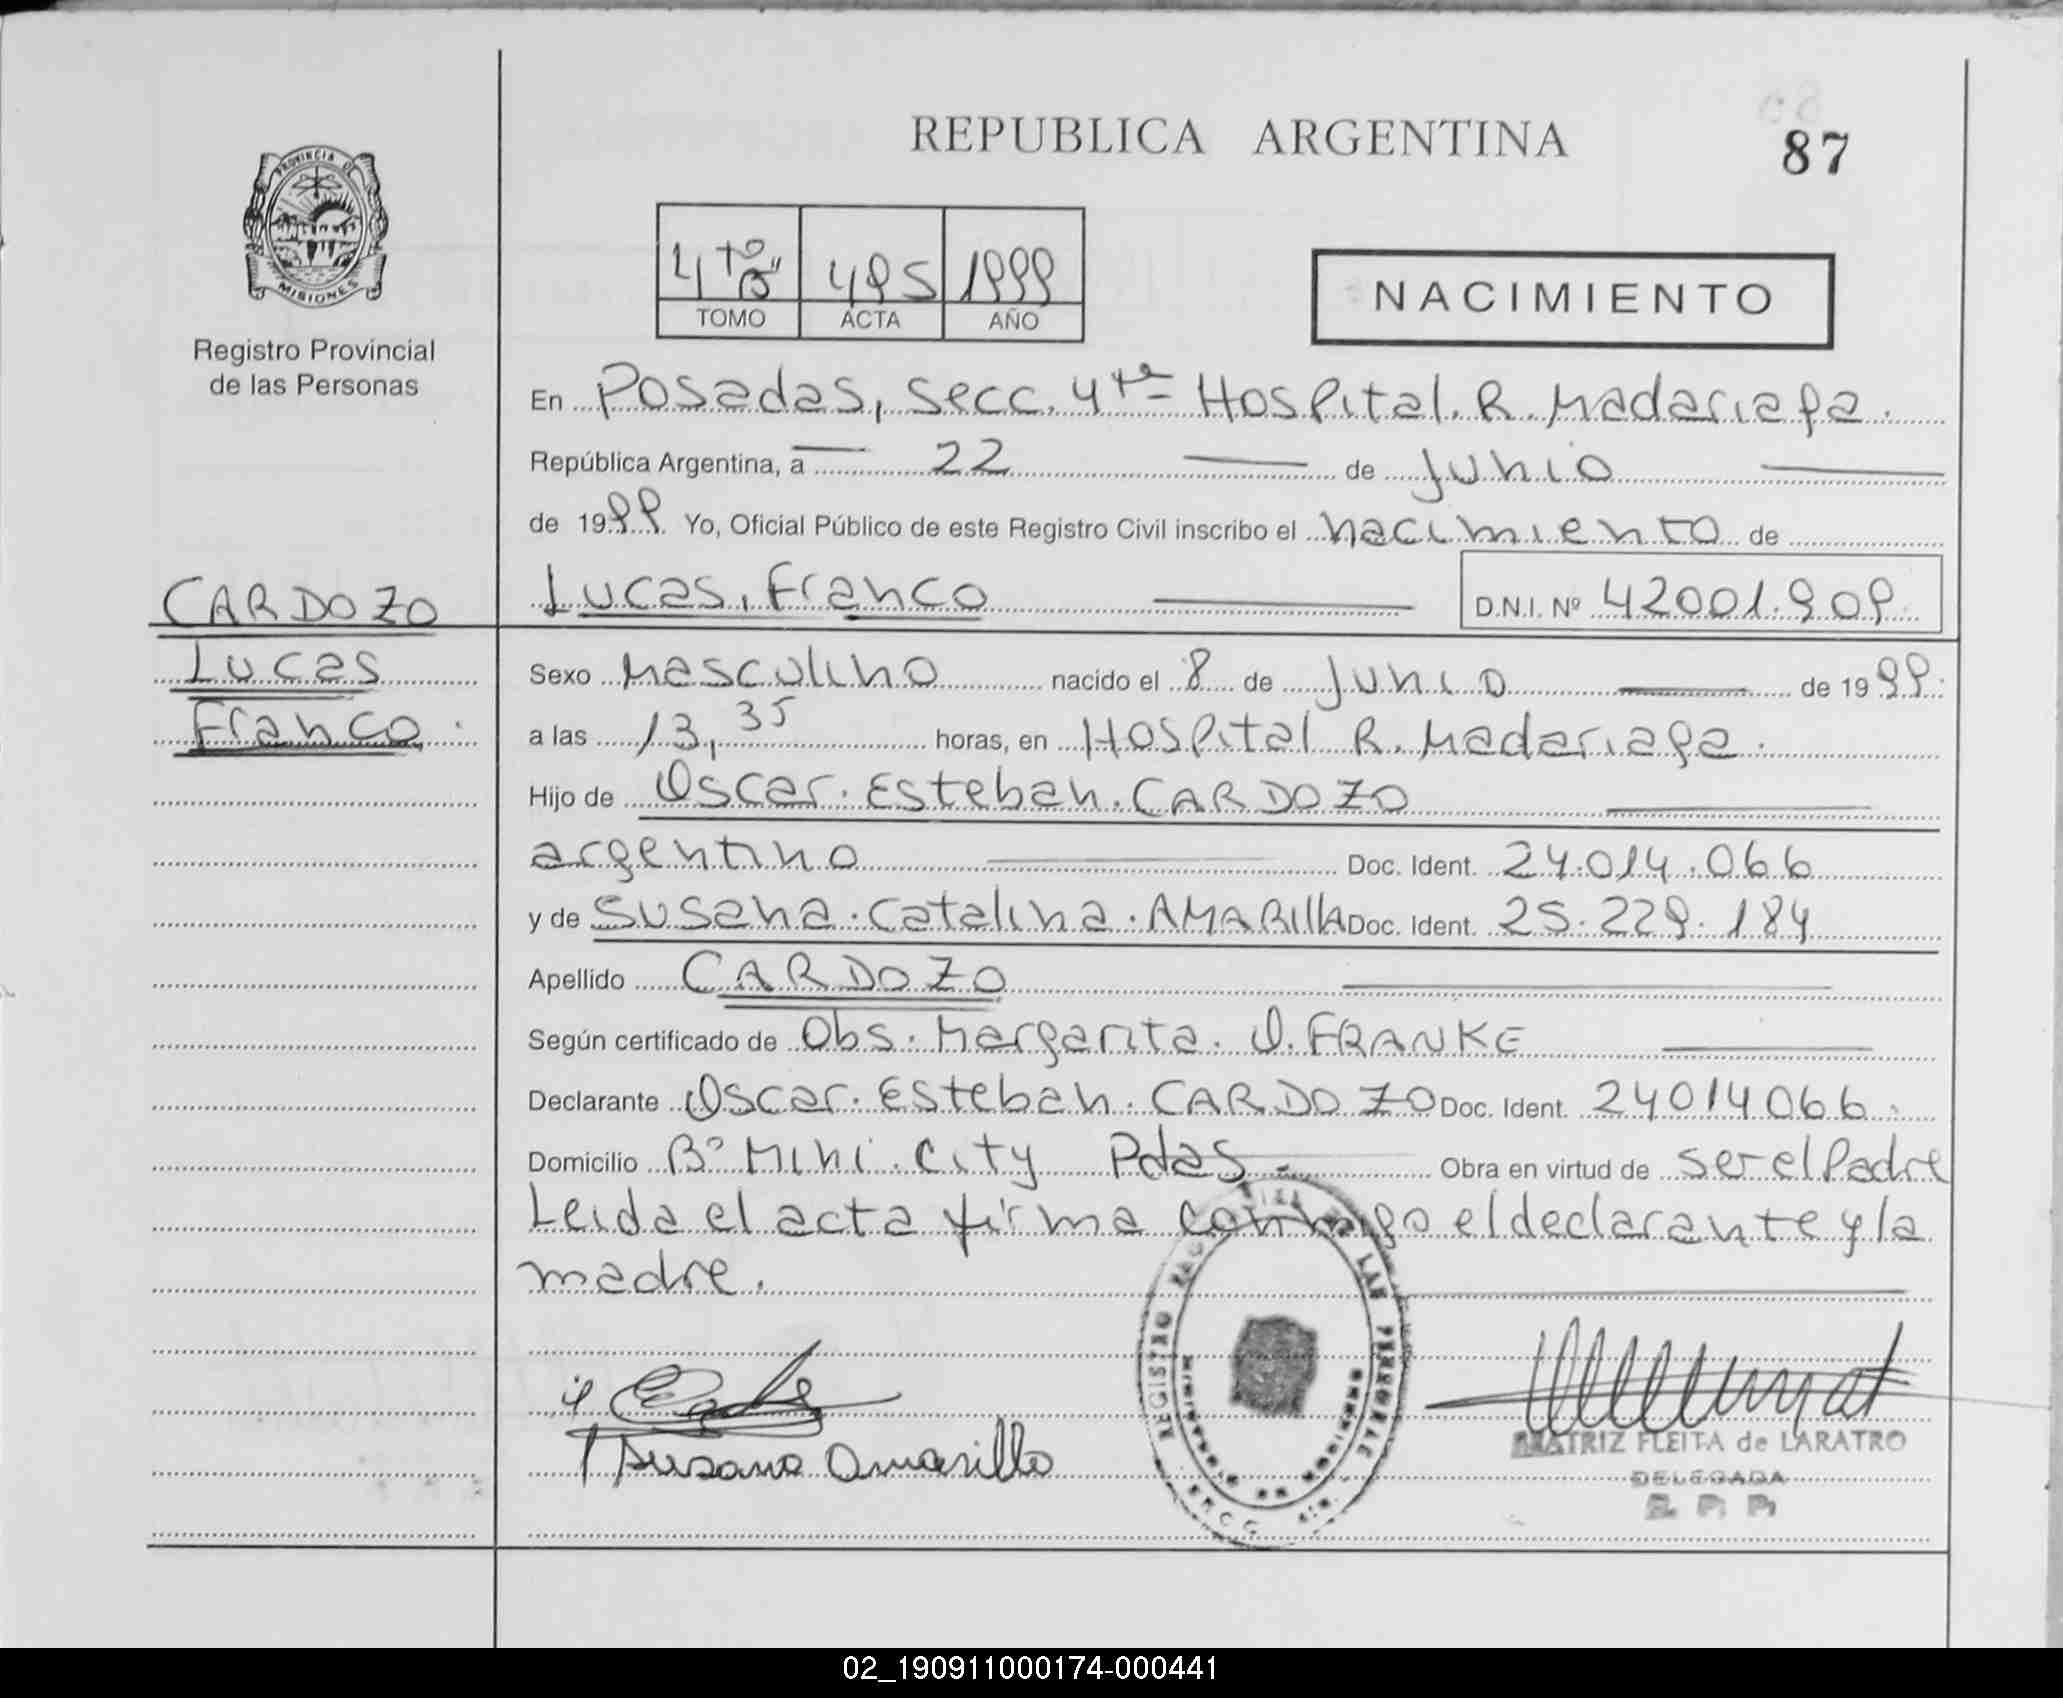 REPUBLICA ARGENTINA
87
PROVINCIA DE
MISIONES
Registro Provincial
de las Personas
4to "B"
495
1999
TOMO
ACTA
AÑO
NACIMIENTO
En Posadas, Secc. 4ta Hospital. R. Madariaga.
República Argentina, a 22 de Junio
de 1999. Yo, Oficial Público de este Registro Civil inscribo el nacimiento de
CARDOZO
Lucas, Franco
D.N.I. Nº 42001.909.
Lucas
Franco.
Sexo Masculino nacido el 8 de Junio de 1999.
a las 13,35 horas, en Hospital R. Madariaga.
Hijo de Oscar. Esteban. CARDOZO
argentino Doc. Ident. 24.014.066
y de Susana. Catalina. AMARIllA Doc. Ident. 25.229.184
Apellido CARDOZO
Según certificado de Obs. Margarita. O. FRANKE
Declarante Oscar. Esteban. CARDOZO Doc. Ident. 24014066.
Domicilio Bº Mini. City Pdas. Obra en virtud de ser el Padre
Leida el acta firma conmigo el declarante y la
madre.
Susana Amarilla
REGISTRO DE LAS PERSONAS
BEATRIZ FLEITA de LARATRO
DELEGADA
R. P. P.
02_190911000174-000441